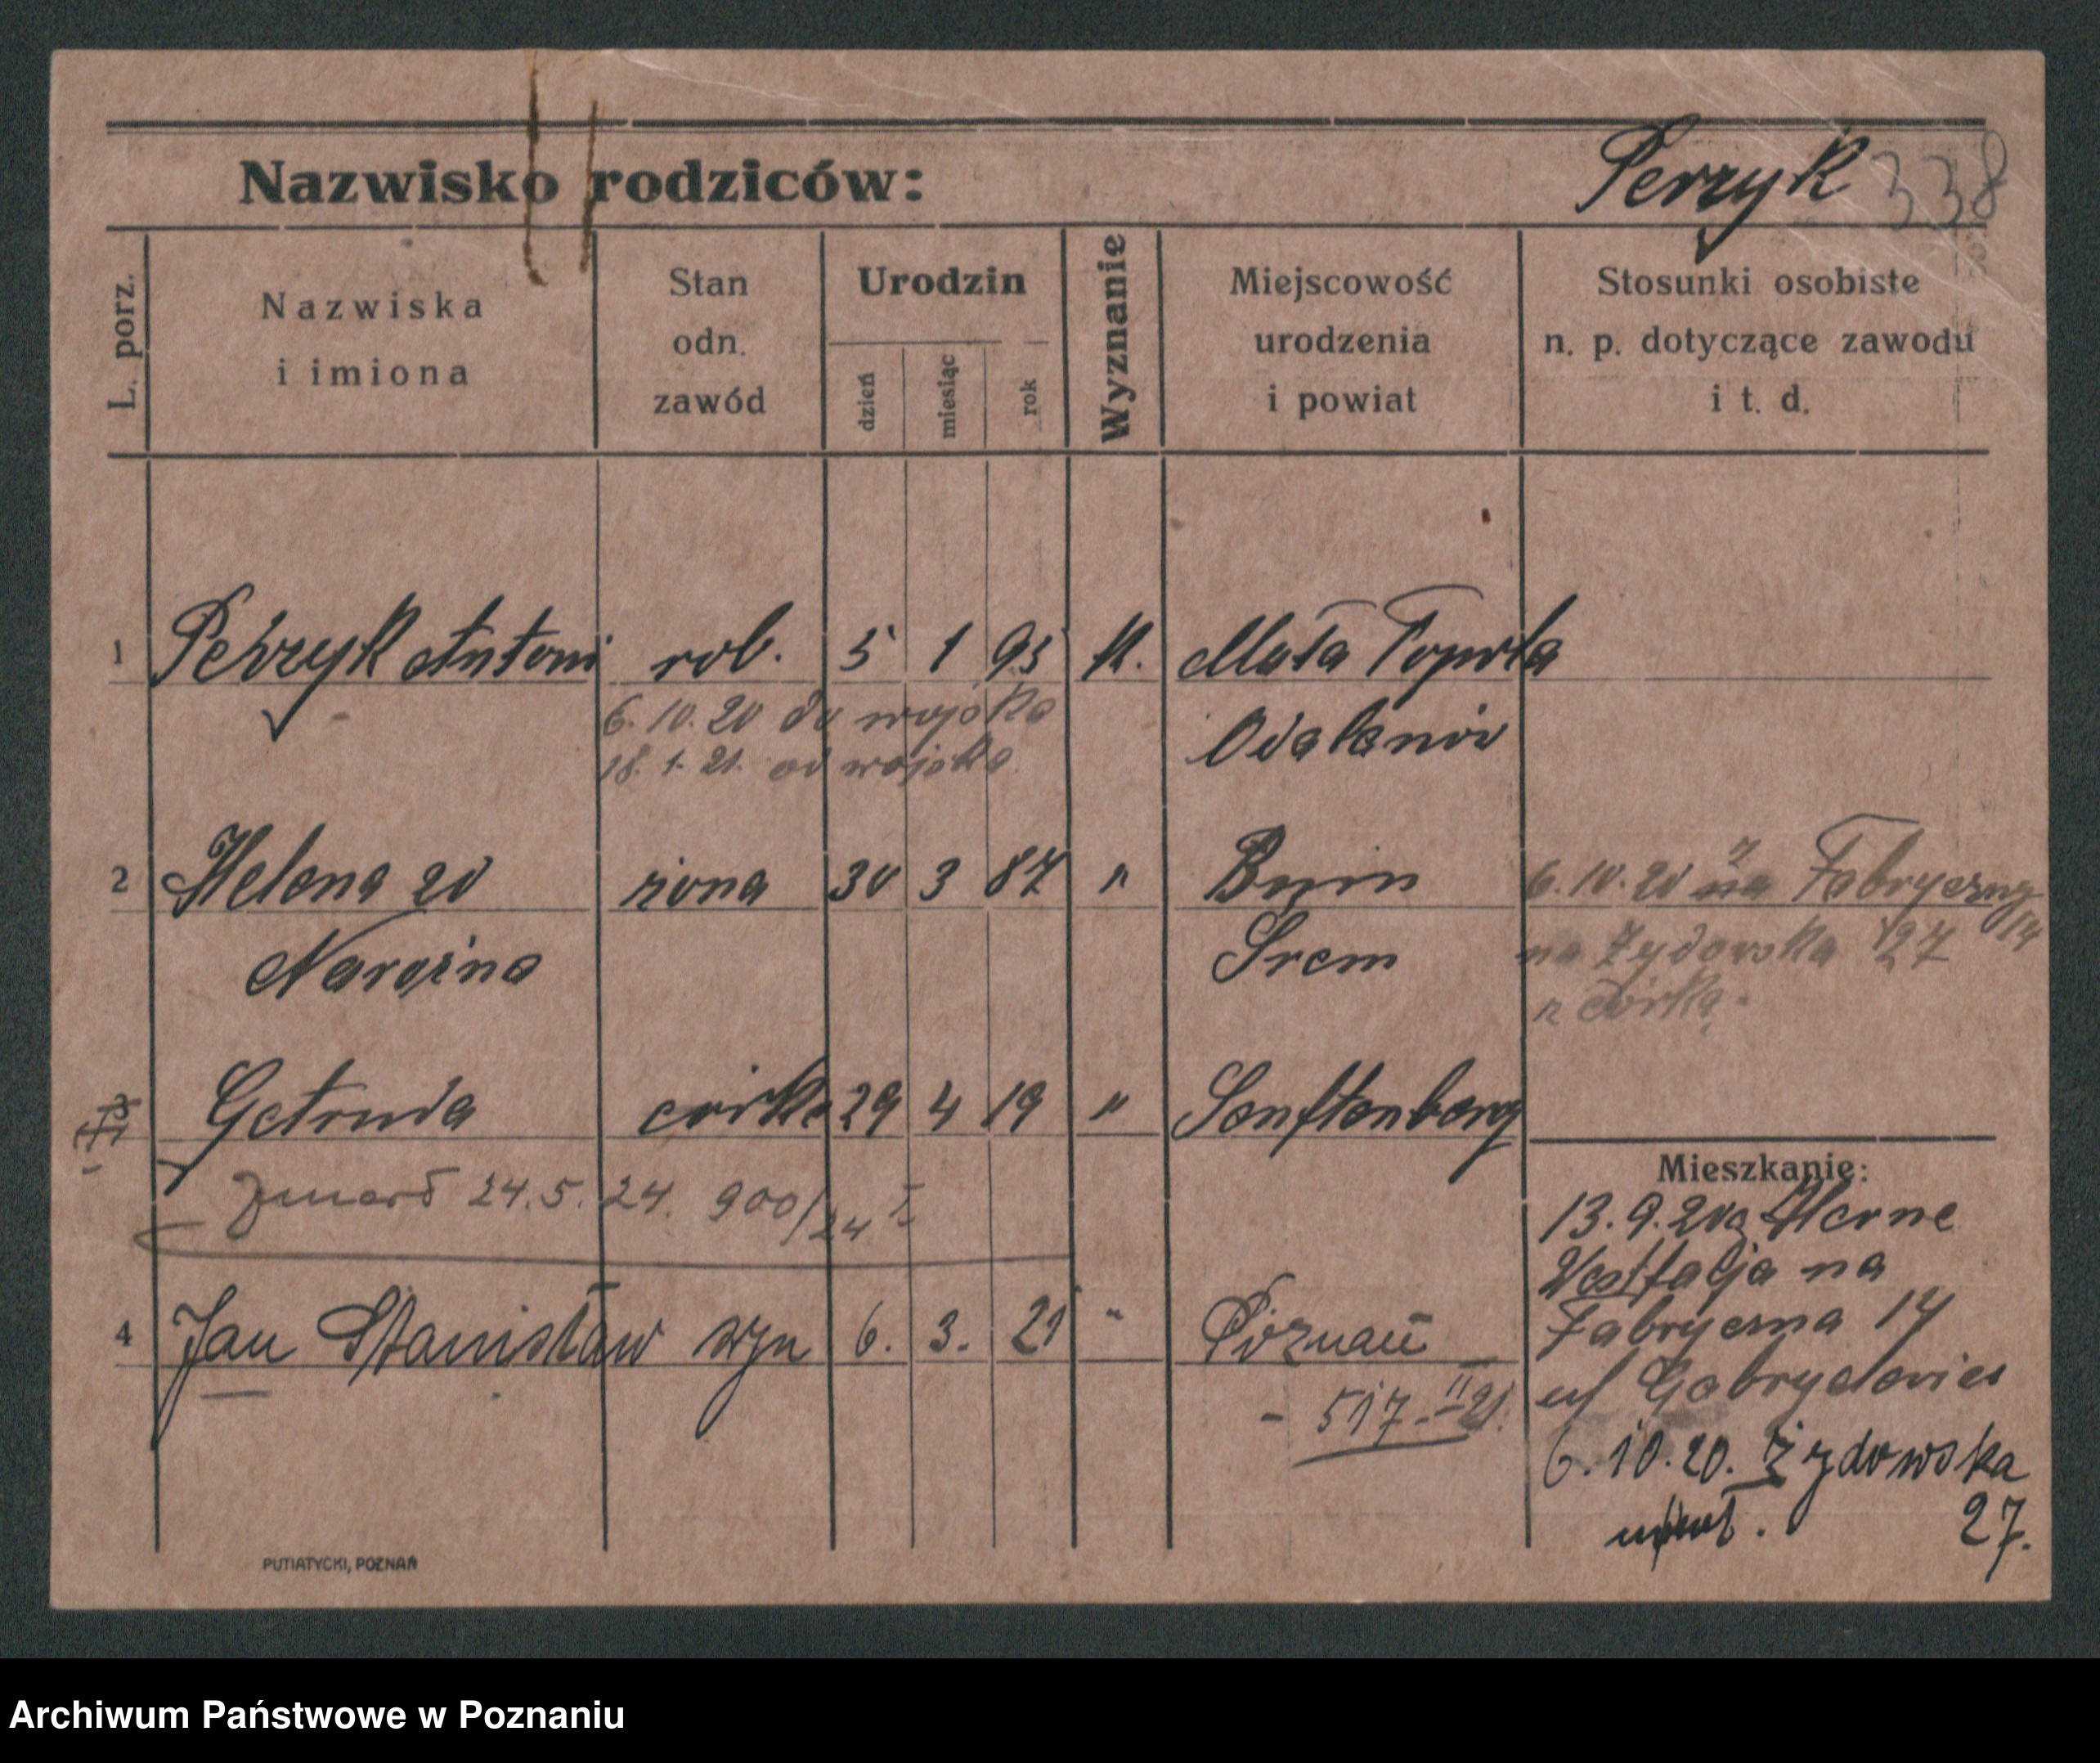 Nazwisko rodziców: Perzyk 338
L. porz.
Nazwiska
i imiona
Stan
odn.
zawód
Urodzin
dzień
miesiąc
rok
Wyznanie
Miejscowość
urodzenia
i powiat
Stosunki osobiste
n. p. dotyczące zawodu
i t. d.
1 Perzyk Antoni rob. 5 1 95 k. Mała Topola
6. 10. 20 do wojska Odolanów
18. 1. 21. od wojska
2 Helena zd żona 30 3 87 " Bnin 6. 10. 20 z Fabryczny 14
Narożna Srem na Zydowska 27
z córką.
3 Getruda córka 29 4 19 " Senftenberg
Zmarł 24. 5. 24. 900/24 I
4 Jan Stanisław syn 6. 3. 21 " Poznań
- 517 - II 21.
Mieszkanie:
13. 9. 20 z Herne
Westfalja na
Fabryczna 14
Gabrydowicz
6. 10. 20. Żydowska
27.
PUTIATYCKI, POZNAŃ
Archiwum Państwowe w Poznaniu